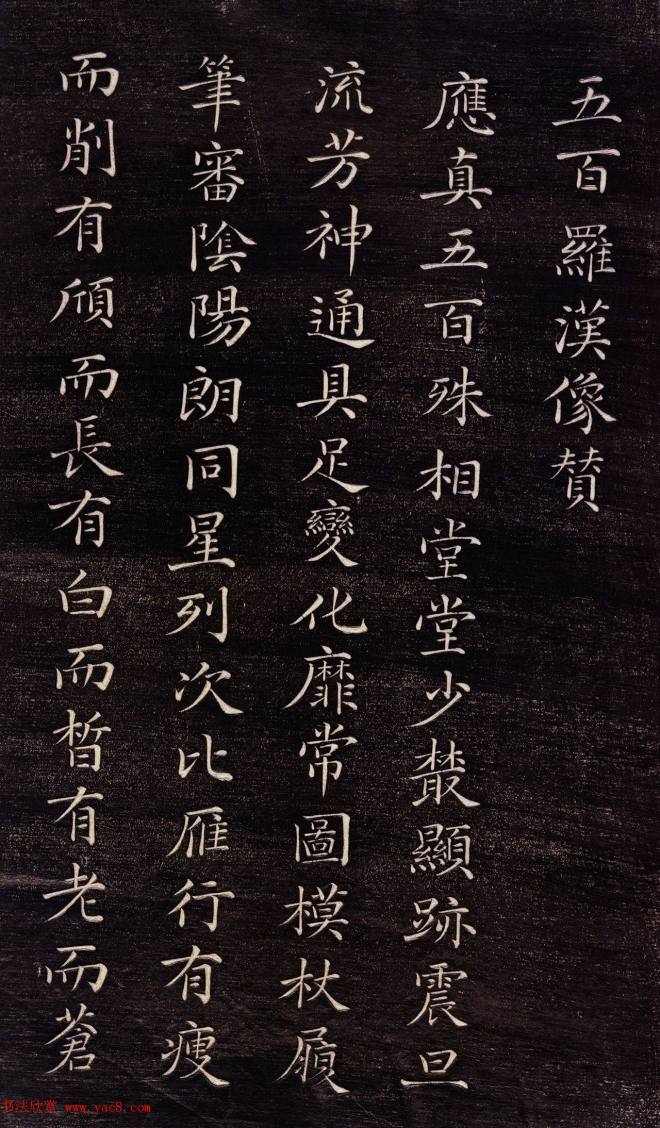 五百羅漢像賛
應真五百殊相堂堂少䕺顯跡震旦
流芳神通具足變化靡常圖模杖屨
筆審陰陽朗同星列次比雁行有瘦
而削有頎而長有白而晳有老而蒼
书法欣赏 www.yac8.com